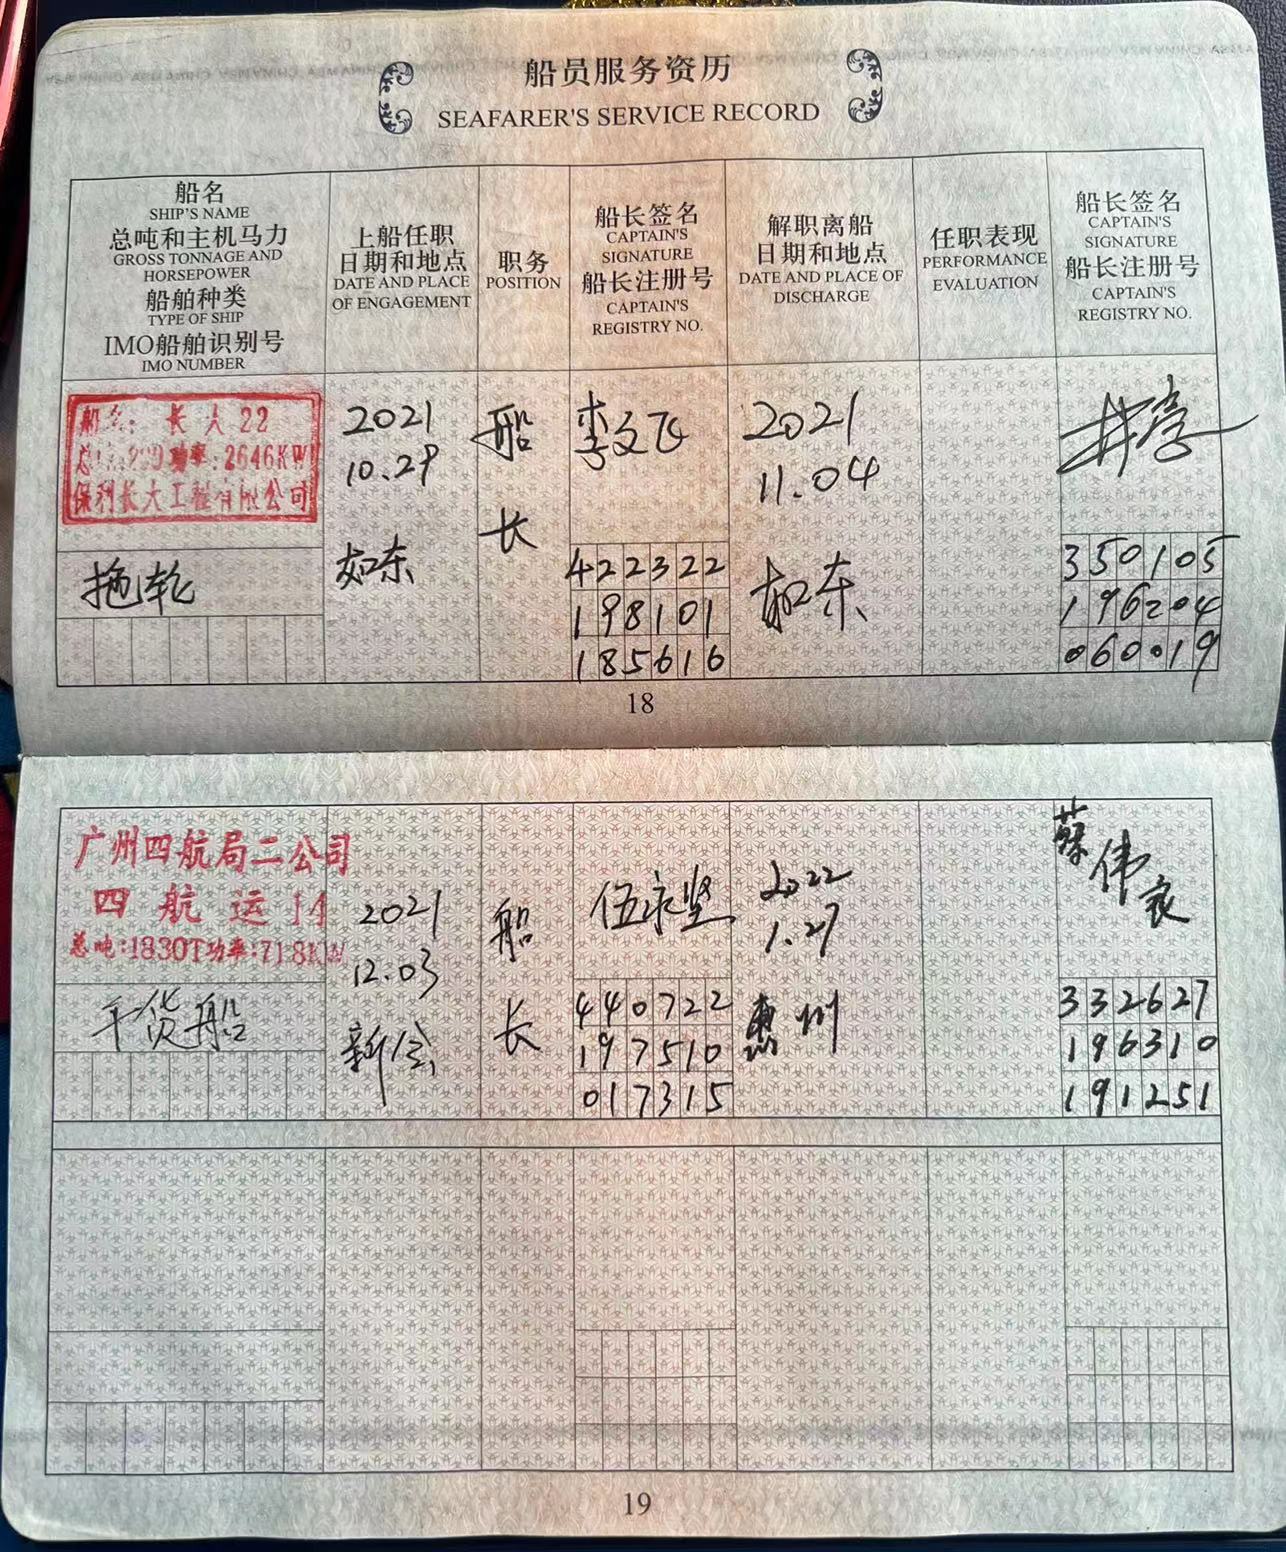 船员服务资历
SEAFARER'S SERVICE RECORD
船名
SHIP'S NAME
总吨和主机马力
GROSS TONNAGE AND
HORSEPOWER
船舶种类
TYPE OF SHIP
IMO船舶识别号
IMO NUMBER
上船任职
日期和地点
DATE AND PLACE
OF ENGAGEMENT
职务
POSITION
船长签名
CAPTAIN'S
SIGNATURE
船长注册号
CAPTAIN'S
REGISTRY NO.
解职离船
日期和地点
DATE AND PLACE OF
DISCHARGE
任职表现
PERFORMANCE
EVALUATION
船长签名
CAPTAIN'S
SIGNATURE
船长注册号
CAPTAIN'S
REGISTRY NO.
船名: 长大22
功率:2646KW
保利长大工程有限公司
拖轮
2021
10.29
如东
船
长
李文飞
422322
198101
185616
2021
11.04
如东
350105
196204
060019
18
广州四航局二公司
四航运14
总吨:1830T功率:718KW
干货船
2021
12.03
新会
船
长
伍永坚
440722
197510
017315
2022
1.27
惠州
蔡伟良
332627
196310
191251
19